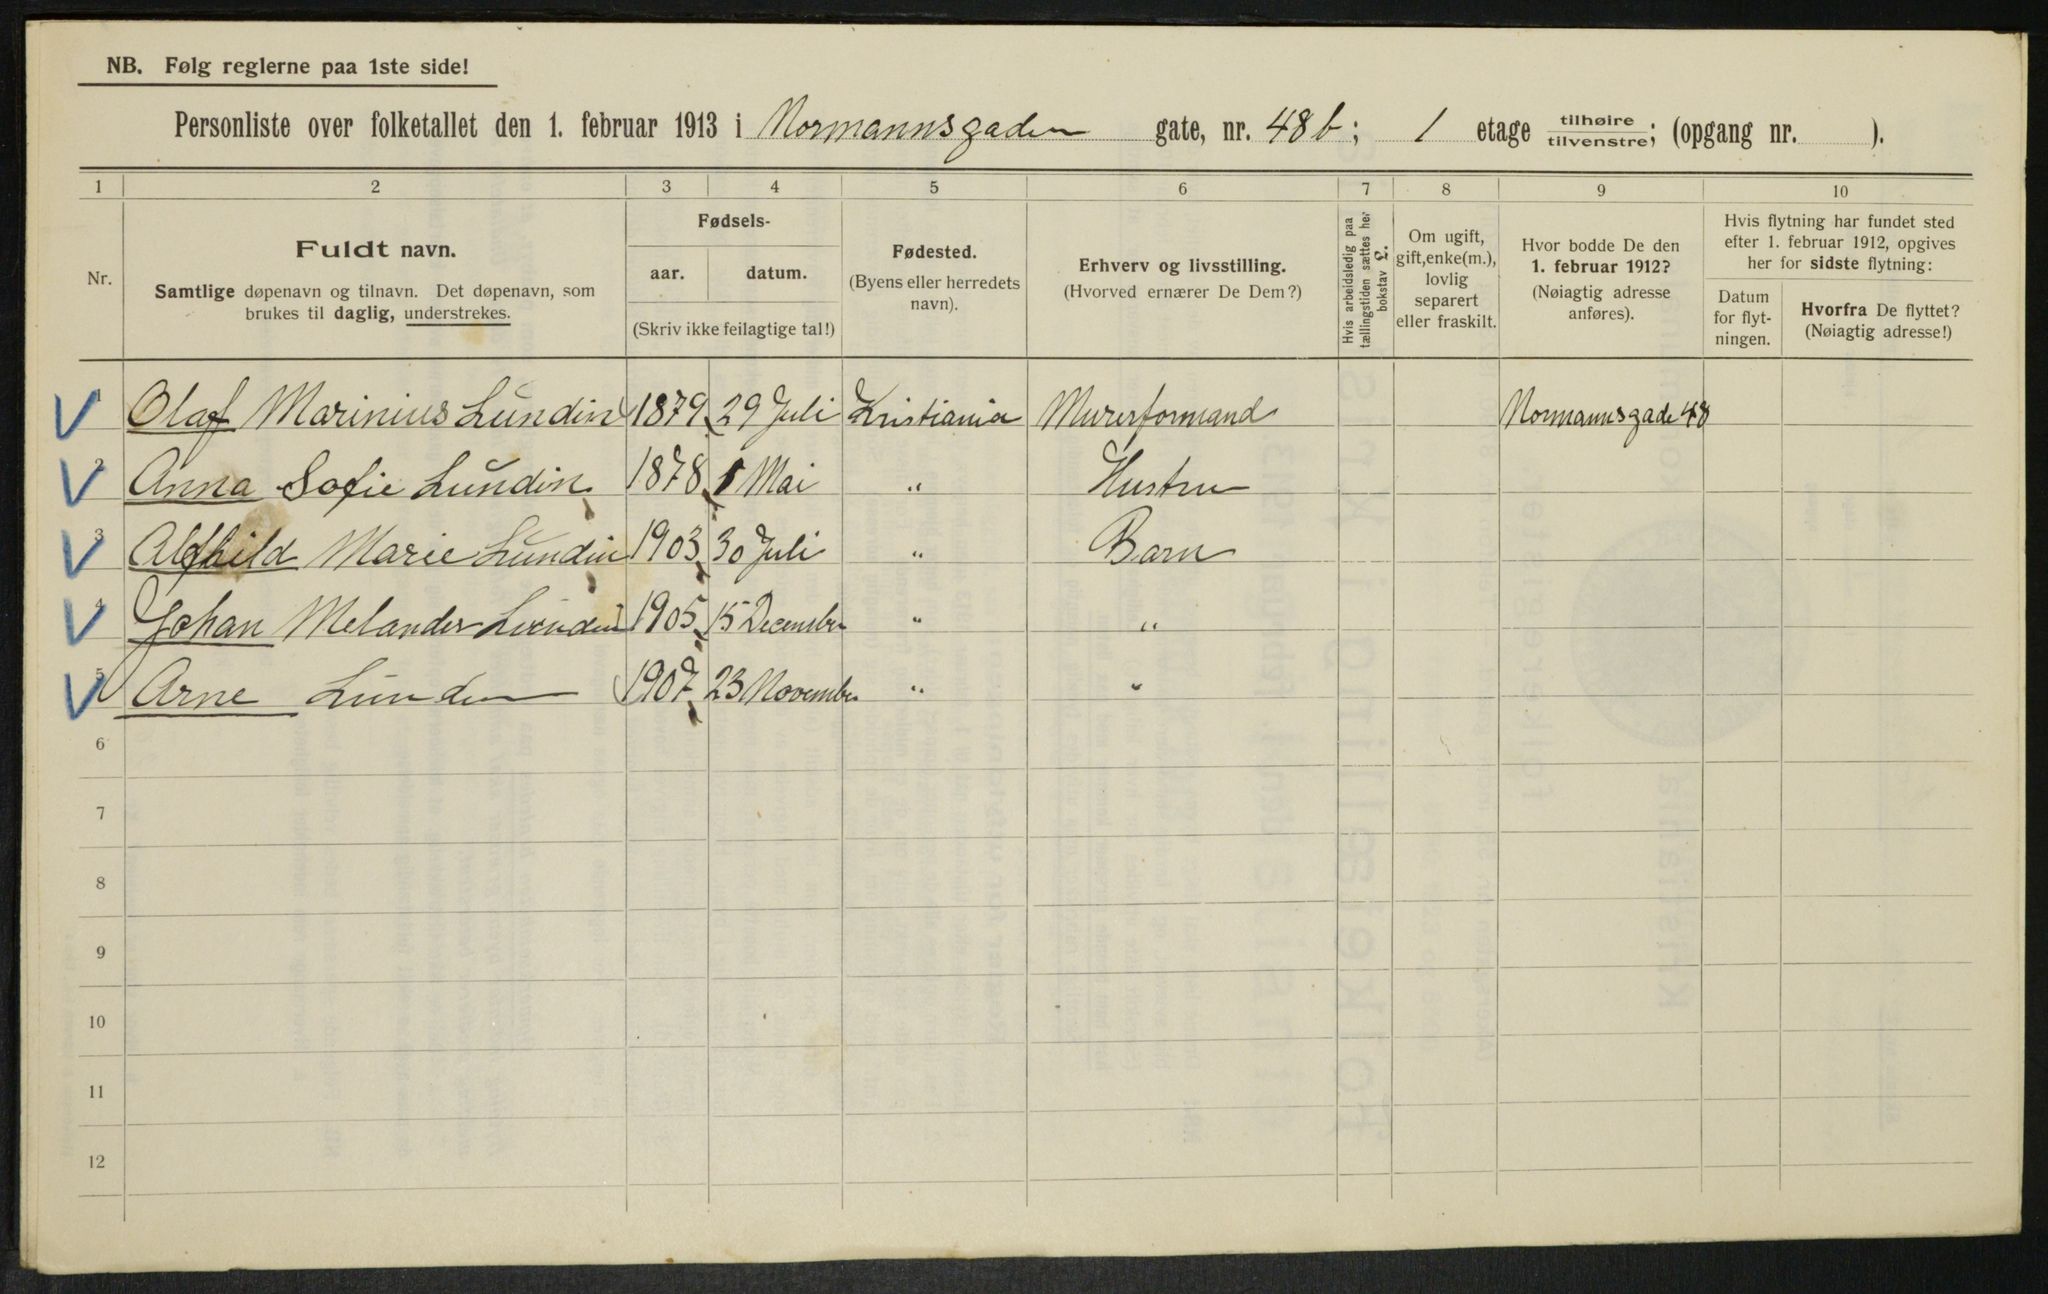 NB. Følg reglerne paa 1ste side!
Personliste over folketallet den 1. februar 1913 i Normannsgaden gate, nr. 48b; 1 etage tilhøire/tilvenstre; (opgang nr. ).
1 2 3 4 5 6 7 8 9 10
Nr.
Fuldt navn.
Samtlige døpenavn og tilnavn. Det døpenavn, som
brukes til daglig, understrekes.
Fødsels-
aar. datum.
(Skriv ikke feilagtige tal!)
Fødested.
(Byens eller herredets
navn).
Erhverv og livsstilling.
(Hvorved ernærer De Dem?)
Hvis arbeidsledig paa
tællingstiden sættes her
bokstav L.
Om ugift,
gift, enke(m.),
lovlig
separert
eller fraskilt.
Hvor bodde De den
1. februar 1912?
(Nøiagtig adresse
anføres).
Hvis flytning har fundet sted
efter 1. februar 1912, opgives
her for sidste flytning:
Datum
for flyt-
ningen.
Hvorfra De flyttet?
(Nøiagtig adresse!)
1 Olaf Marinius Lundin 1879 29 Juli Kristiania Murerformand Normannsgade 48
2 Anna Sofie Lundin 1878 1 Mai " Hustru
3 Alfhild Marie Lundin 1903 30 Juli " Barn
4 Johan Melander Lundin 1905 15 December " "
5 Arne Lundin 1907 23 November " "
6
7
8
9
10
11
12